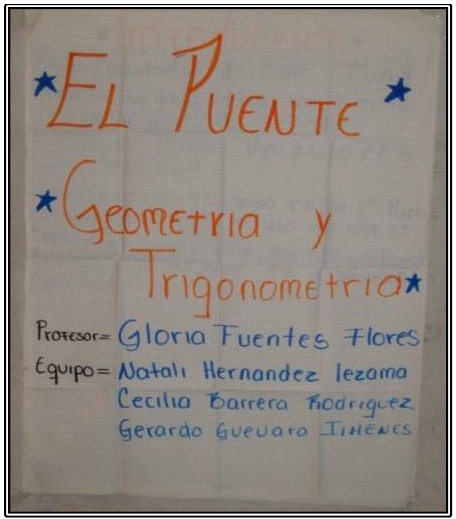 El Puente
Geometria y
Trigonometria
Profesor= Gloria Fuentes Flores
Equipo= Natali Hernandez lezama
Cecilia Barrera Rodriguez
Gerardo Guevara